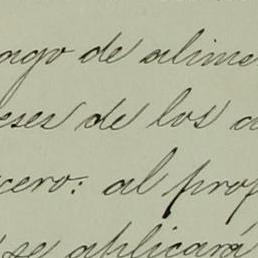 ago de alime
eses de los a
cero: al prof
se aplicará